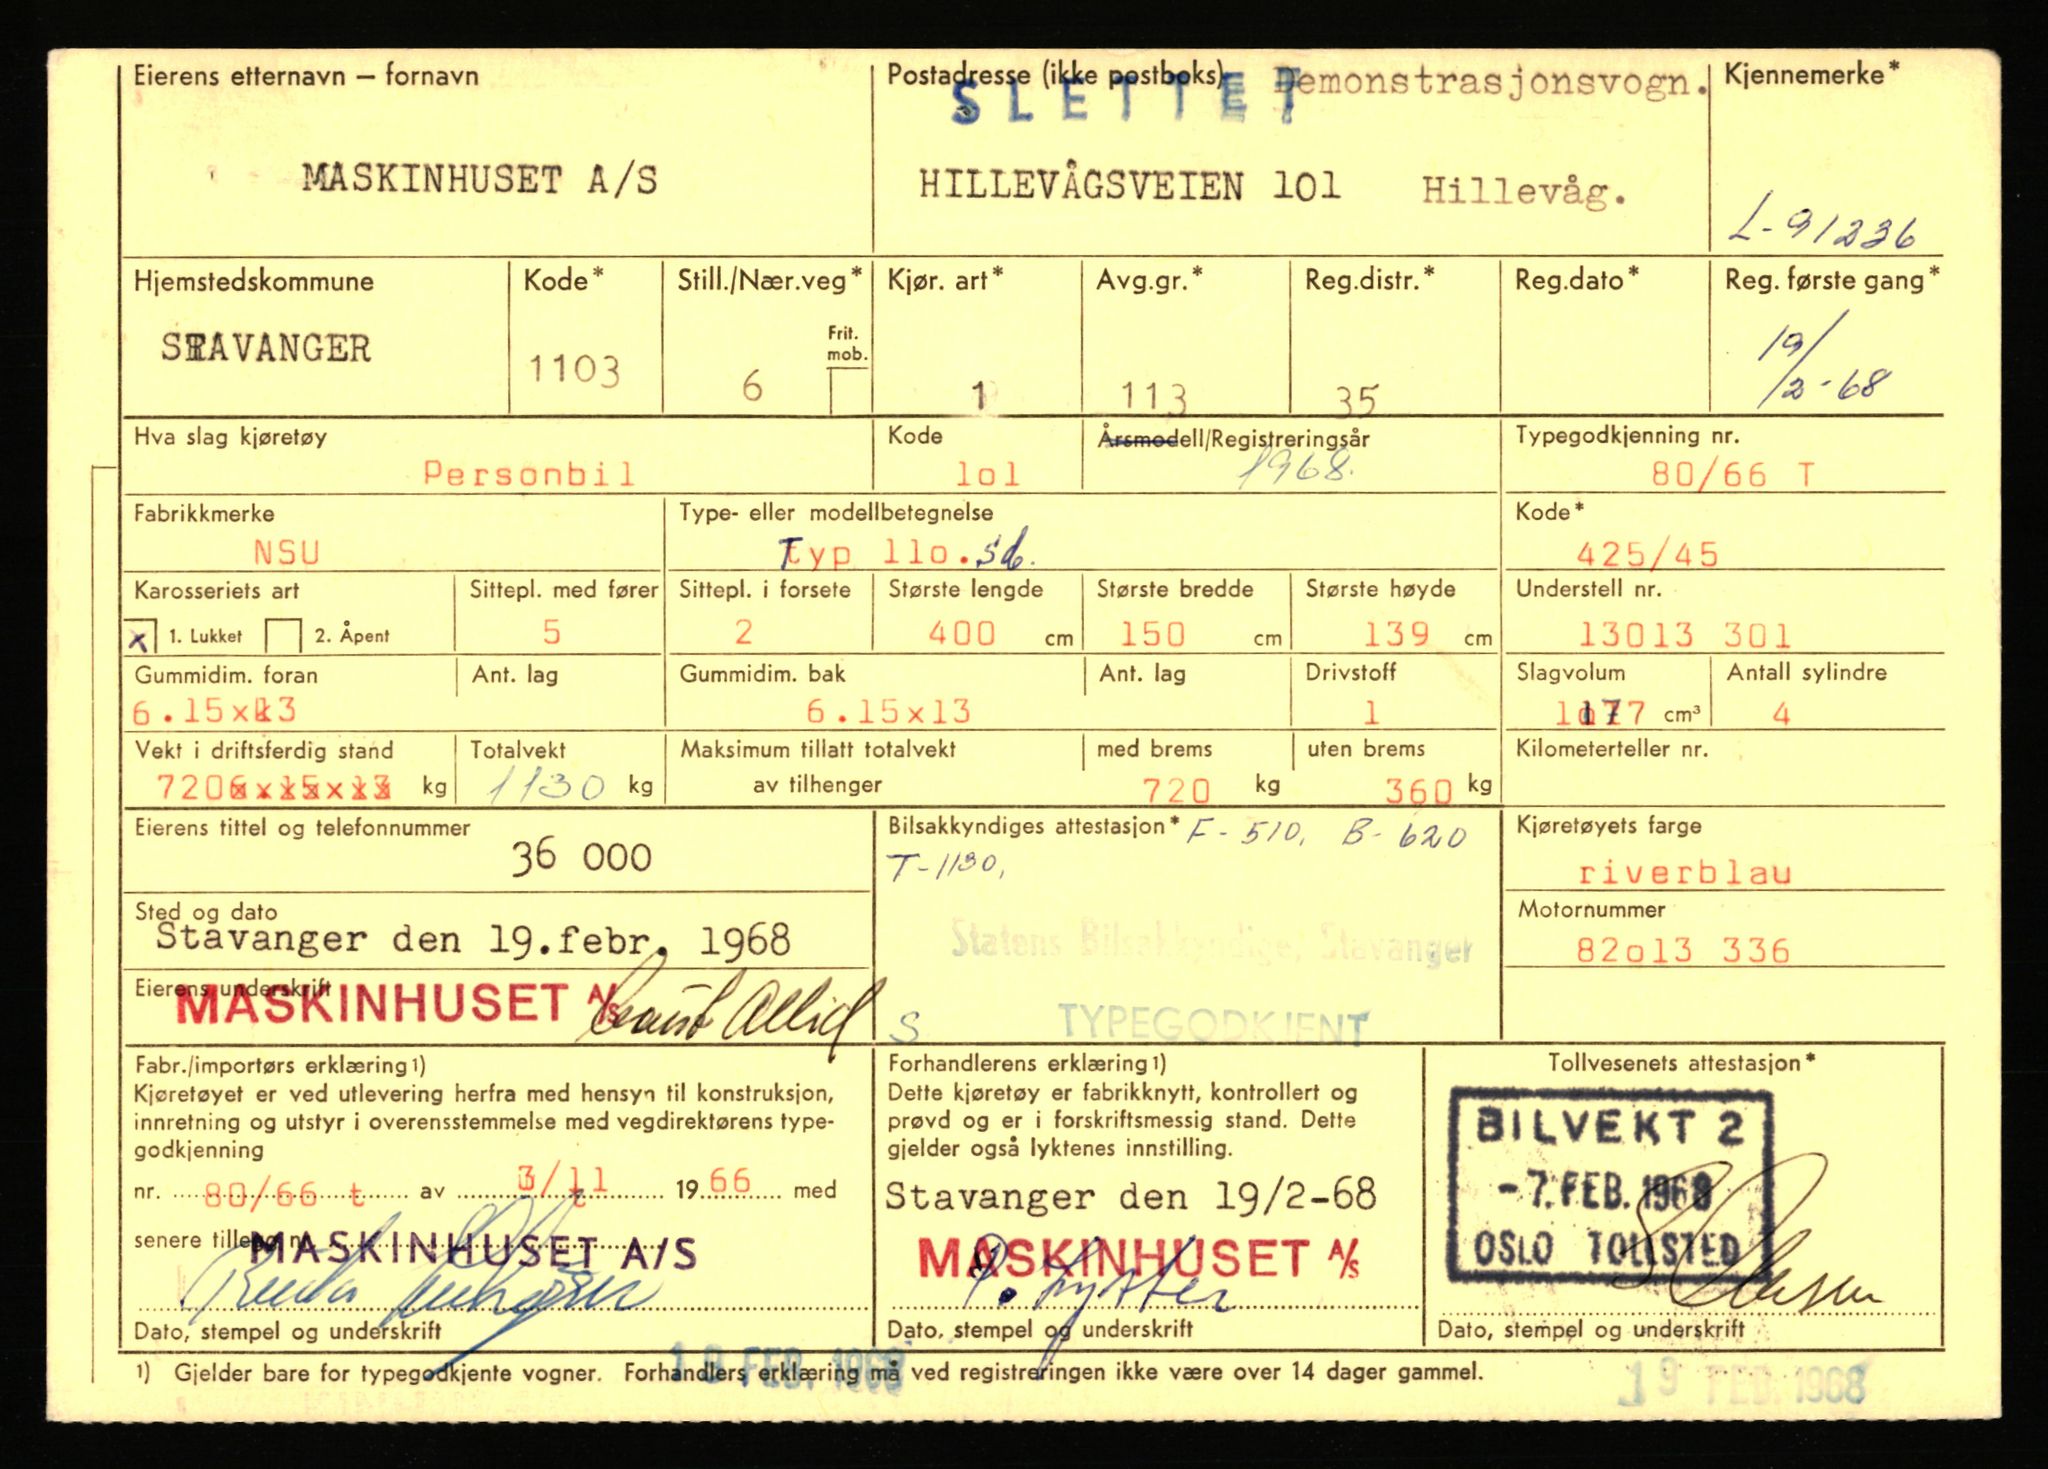 Eierens etternavn – fornavn
Postadresse (ikke postboks)
SLETTET
Demonstrasjonsvogn.
Kjennemerke*
MASKINHUSET A/S
HILLEVÅGSVEIEN 101 Hillevåg.
L-91236
Hjemstedskommune
Kode*
Still./Nær.veg*
Kjør. art*
Avg.gr.*
Reg.distr.*
Reg.dato*
Reg. første gang*
Frit. mob.
STAVANGER
1103
6
1
113
35
19/2-68
Hva slag kjøretøy
Kode
Årsmodell/Registreringsår
Typegodkjenning nr.
Personbil
lol
1968.
80/66 T
Fabrikkmerke
Type- eller modellbetegnelse
Kode*
NSU
Typ llo.
425/45
Karosseriets art
Sittepl. med fører
Sittepl. i forsete
Største lengde
Største bredde
Største høyde
Understell nr.
x 1. Lukket 2. Åpent
5
2
400 cm
150 cm
139 cm
13013 301
Gummidim. foran
Ant. lag
Gummidim. bak
Ant. lag
Drivstoff
Slagvolum
Antall sylindre
6.15x13
6.15x13
1
1177 cm³
4
Vekt i driftsferdig stand
Totalvekt
Maksimum tillatt totalvekt
med brems
uten brems
Kilometerteller nr.
720 kg
1130 kg
av tilhenger
720 kg
360 kg
Eierens tittel og telefonnummer
Bilsakkyndiges attestasjon* F-510, B-620
Kjøretøyets farge
36 000
T-1130,
riverblau
Sted og dato
Motornummer
Stavanger den 19.febr. 1968
Statens Bilsakkyndige, Stavanger
82o13 336
Eierens underskrift
MASKINHUSET A/S
S TYPEGODKJENT
Fabr./importørs erklæring 1)
Kjøretøyet er ved utlevering herfra med hensyn til konstruksjon,
innretning og utstyr i overensstemmelse med vegdirektørens type-
godkjenning
nr. 80/66 t av 3/11 1966 med
senere tillegg nr.
MASKINHUSET A/S
Dato, stempel og underskrift
Forhandlerens erklæring 1)
Dette kjøretøy er fabrikknytt, kontrollert og
prøvd og er i forskriftsmessig stand. Dette
gjelder også lyktenes innstilling.
Stavanger den 19/2-68
MASKINHUSET A/S
Dato, stempel og underskrift
Tollvesenets attestasjon*
BILVEKT 2
-7. FEB. 1968
OSLO TOLLSTED
Dato, stempel og underskrift
1) Gjelder bare for typegodkjente vogner. Forhandlers erklæring må ved registreringen ikke være over 14 dager gammel.
19 FEB. 1968
19 FEB. 1968